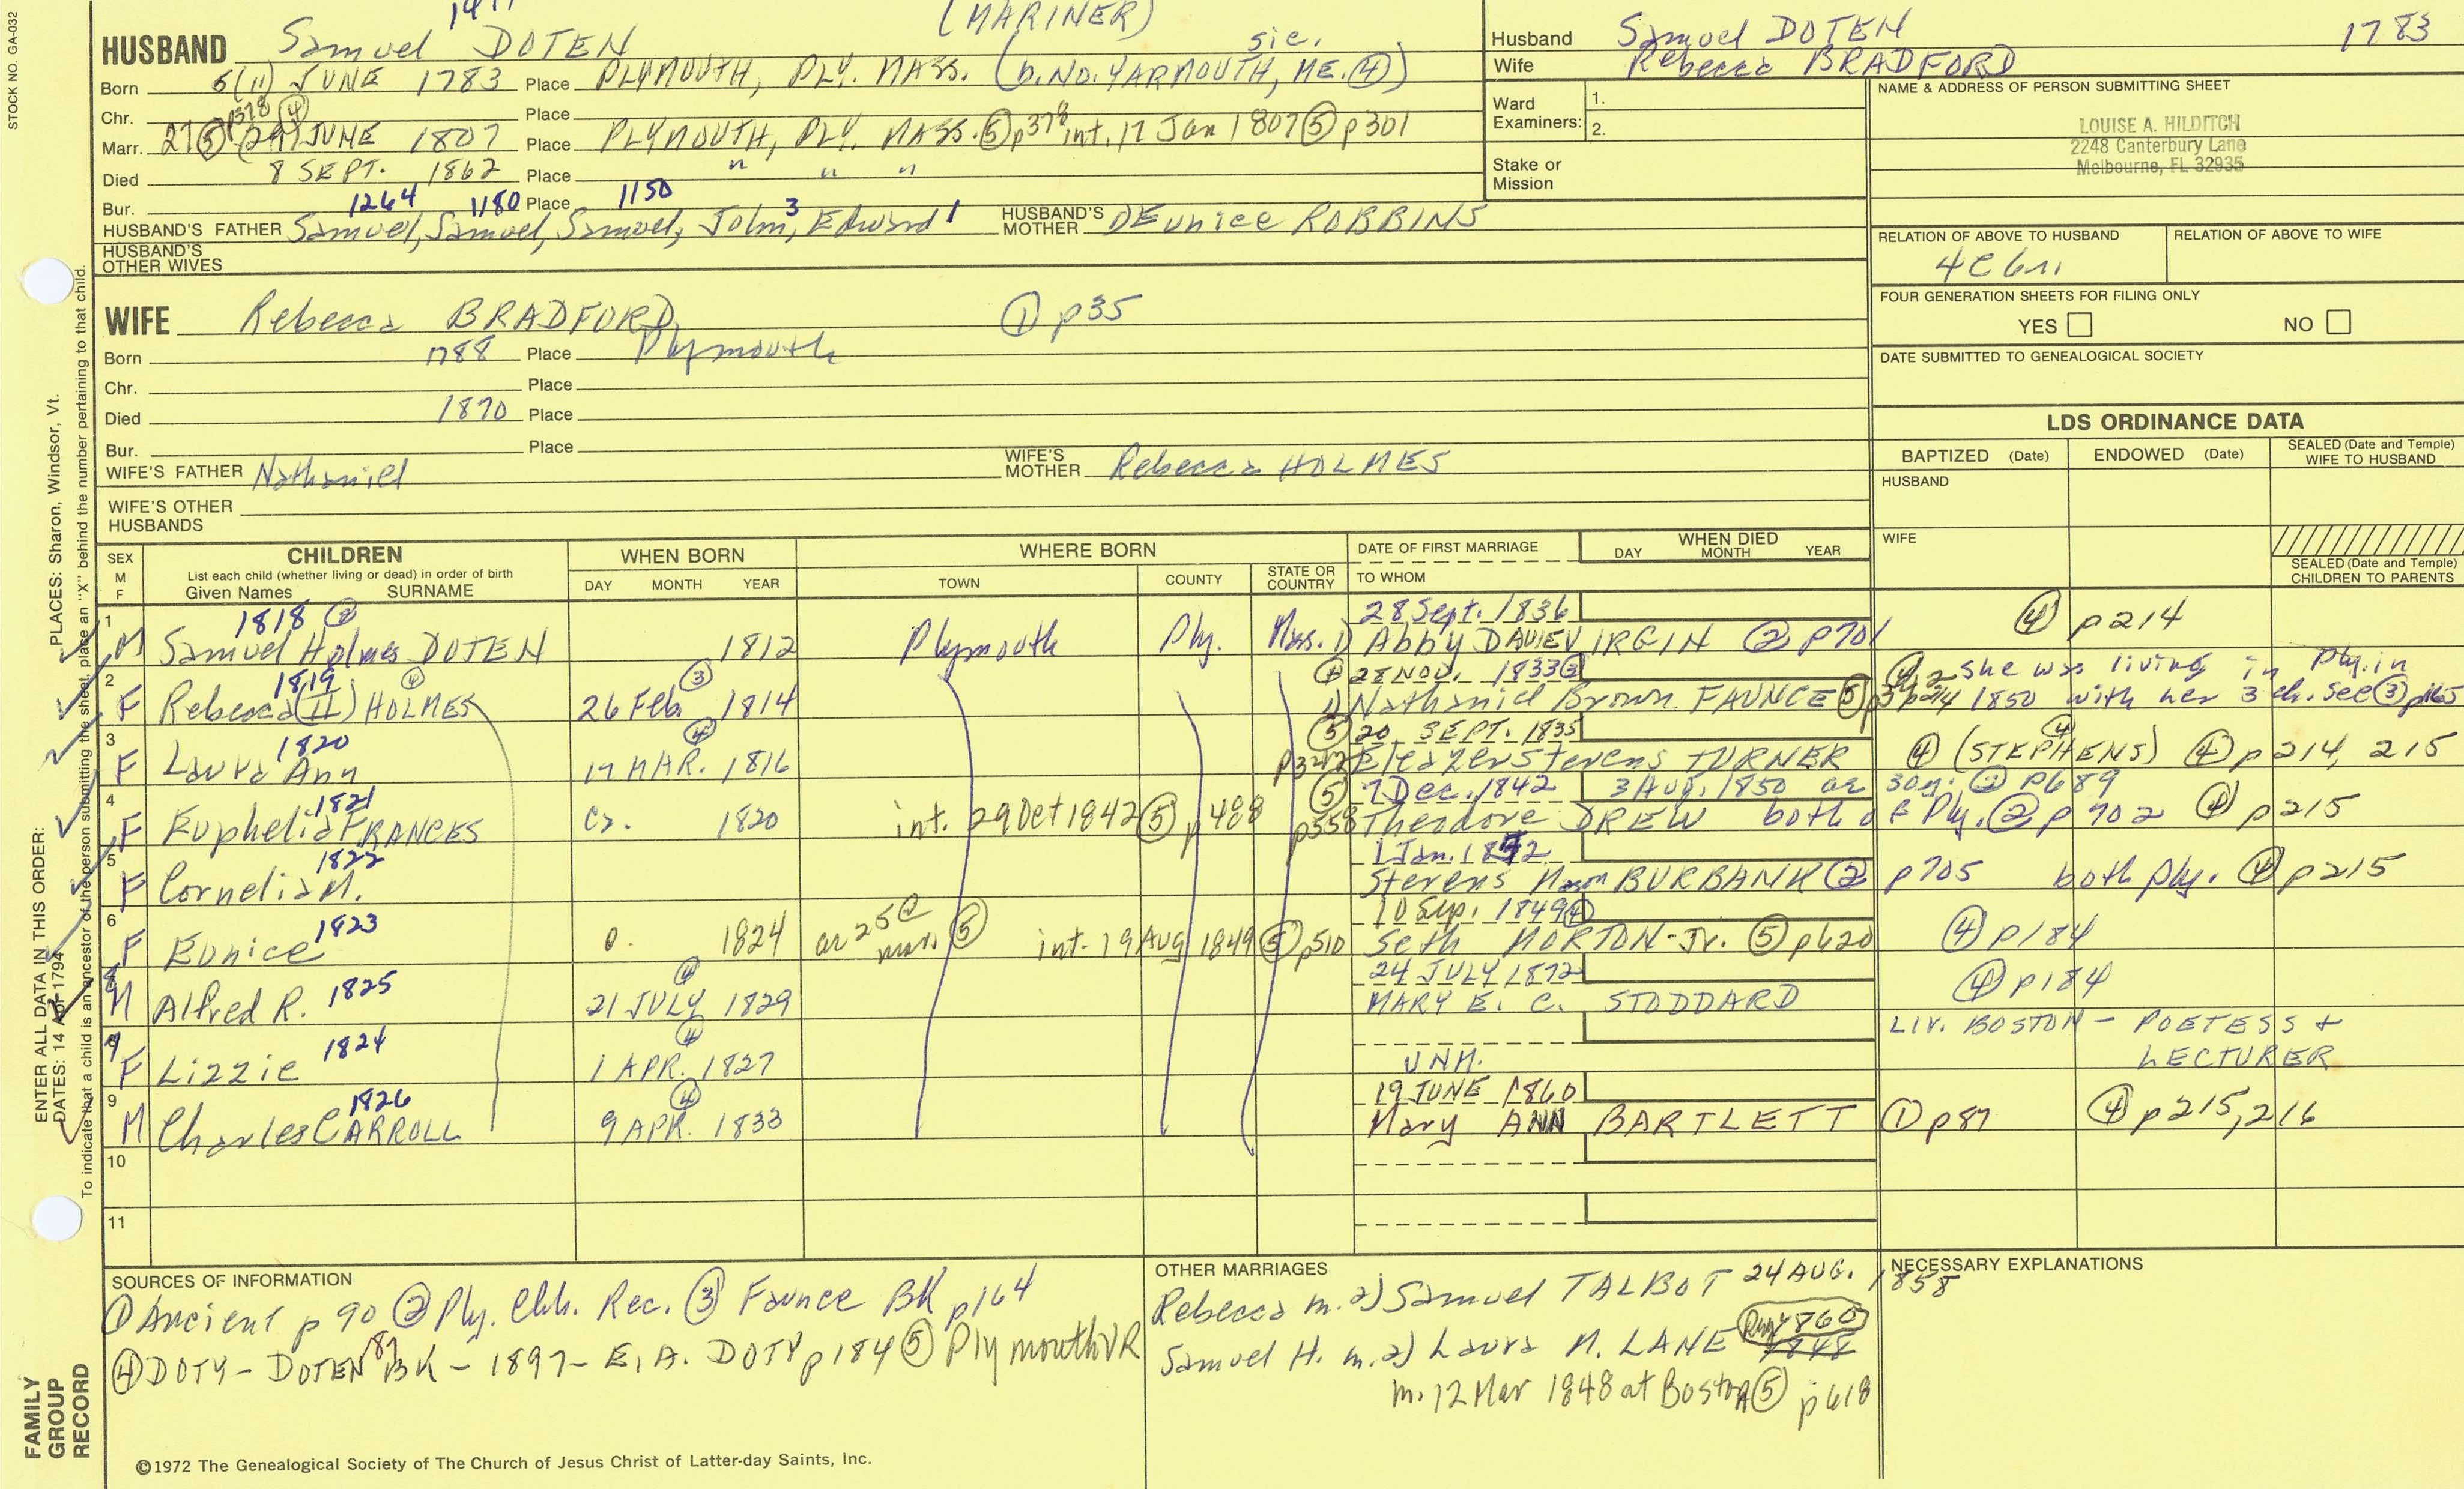 STOCK NO. GA-032
(MARINER)
HUSBAND Samuel DOTEN
sic.
Born 6(11) JUNE 1783 Place PLYMOUTH, PLY. MASS. (b. NO. YARMOUTH, ME. ④)
Chr. Place
p378 ④
Marr. 27 ⑤ (29) JUNE 1807 Place PLYMOUTH, PLY. MASS. ⑤ p378 int. 17 Jan 1807 ⑤ p301
Died 8 SEPT. 1862 Place " " "
Bur. Place
1264 1180 1150 3 1
HUSBAND'S FATHER Samuel, Samuel, Samuel, John, Edward HUSBAND'S MOTHER DEunice ROBBINS
HUSBAND'S OTHER WIVES
Husband Samuel DOTEN 1783
Wife Rebecca BRADFORD
Ward Examiners: 1.
2.
Stake or Mission
NAME & ADDRESS OF PERSON SUBMITTING SHEET
LOUISE A. HILDITCH
2248 Canterbury Lane
Melbourne, FL 32935
RELATION OF ABOVE TO HUSBAND RELATION OF ABOVE TO WIFE
4C6r.
FOUR GENERATION SHEETS FOR FILING ONLY
YES NO
DATE SUBMITTED TO GENEALOGICAL SOCIETY
WIFE Rebecca BRADFORD ① p35
Born 1788 Place Plymouth
Chr. Place
Died 1870 Place
Bur. Place
WIFE'S FATHER Nathaniel WIFE'S MOTHER Rebecca HOLMES
WIFE'S OTHER HUSBANDS
LDS ORDINANCE DATA
BAPTIZED (Date) ENDOWED (Date) SEALED (Date and Temple) WIFE TO HUSBAND
HUSBAND
WIFE
SEALED (Date and Temple) CHILDREN TO PARENTS
SEX M F CHILDREN WHEN BORN WHERE BORN DATE OF FIRST MARRIAGE WHEN DIED
List each child (whether living or dead) in order of birth
Given Names SURNAME DAY MONTH YEAR TOWN COUNTY STATE OR COUNTRY TO WHOM DAY MONTH YEAR
1 1818 ② 28 Sept. 1836
M Samuel Holmes DOTEN 1812 Plymouth Ply. Mass. 1) Abby DAVIE VIRGIN ② p701 ④ p214
2 1819 ④ ③ ④ 28 NOV. 1833 ③ ④ She was living in Ply. in
F Rebecca (II) HOLMES 26 Feb. 1814 1) Nathaniel Brown FAUNCE ⑤ p214 1850 with her 3 ch. see ③ p165
3 1820 ④ ⑤ 20 SEPT. 1835
F Laura Ann 17 MAR. 1816 Eleazer Stevens TURNER ④ (STEPHENS) ④ p214, 215
4 1821 ⑤ 7 Dec. 1842 3 Aug. 1850 ae 30y. ② p689
F Euphelia FRANCES ca. 1820 int. 29 Oct 1842 ⑤ p488 p558 Theodore DREW both of Ply. ② p 702 ④ p215
5 1822 1 Jan. 1852
F Cornelia M. Stevens Mason BURBANK ② p705 both Ply. ④ p215
6 1823 10 Sep. 1849 ④
F Eunice 1824 ae 25 @ mar. ⑤ int. 19 Aug 1849 ⑤ p510 Seth MORTON Jr. ⑤ p620 ④ p184
1825 ④ 24 JULY 1872
M Alfred R. 21 JULY 1829 MARY E. C. STODDARD ④ p184
1824 ④ LIV. BOSTON – POETESS +
F Lizzie 1 APR. 1827 UNM. LECTURER
9 1826 ④ 19 JUNE 1860
M Charles CARROLL 9 APR. 1833 Mary ANN BARTLETT ① p87 ④ p215, 216
10
11
SOURCES OF INFORMATION
① Ancient p 90 ② Ply. Chh. Rec. ③ Faunce BK p164
④ DOTY–DOTEN BK – 1897 – E. A. DOTY p184 ⑤ Plymouth VR
OTHER MARRIAGES
Rebecca m. 2) Samuel TALBOT 24 AUG. 1858
Samuel H. m. 2) Laura M. LANE 1848
m. 12 Mar 1848 at Boston ⑤ p618
NECESSARY EXPLANATIONS
ENTER ALL DATA IN THIS ORDER:
PLACES: Sharon, Windsor, Vt.
DATES: 14 Apr 1794
To indicate that a child is an ancestor of the person submitting the sheet, place an "X" behind the number pertaining to that child.
FAMILY GROUP RECORD
©1972 The Genealogical Society of The Church of Jesus Christ of Latter-day Saints, Inc.